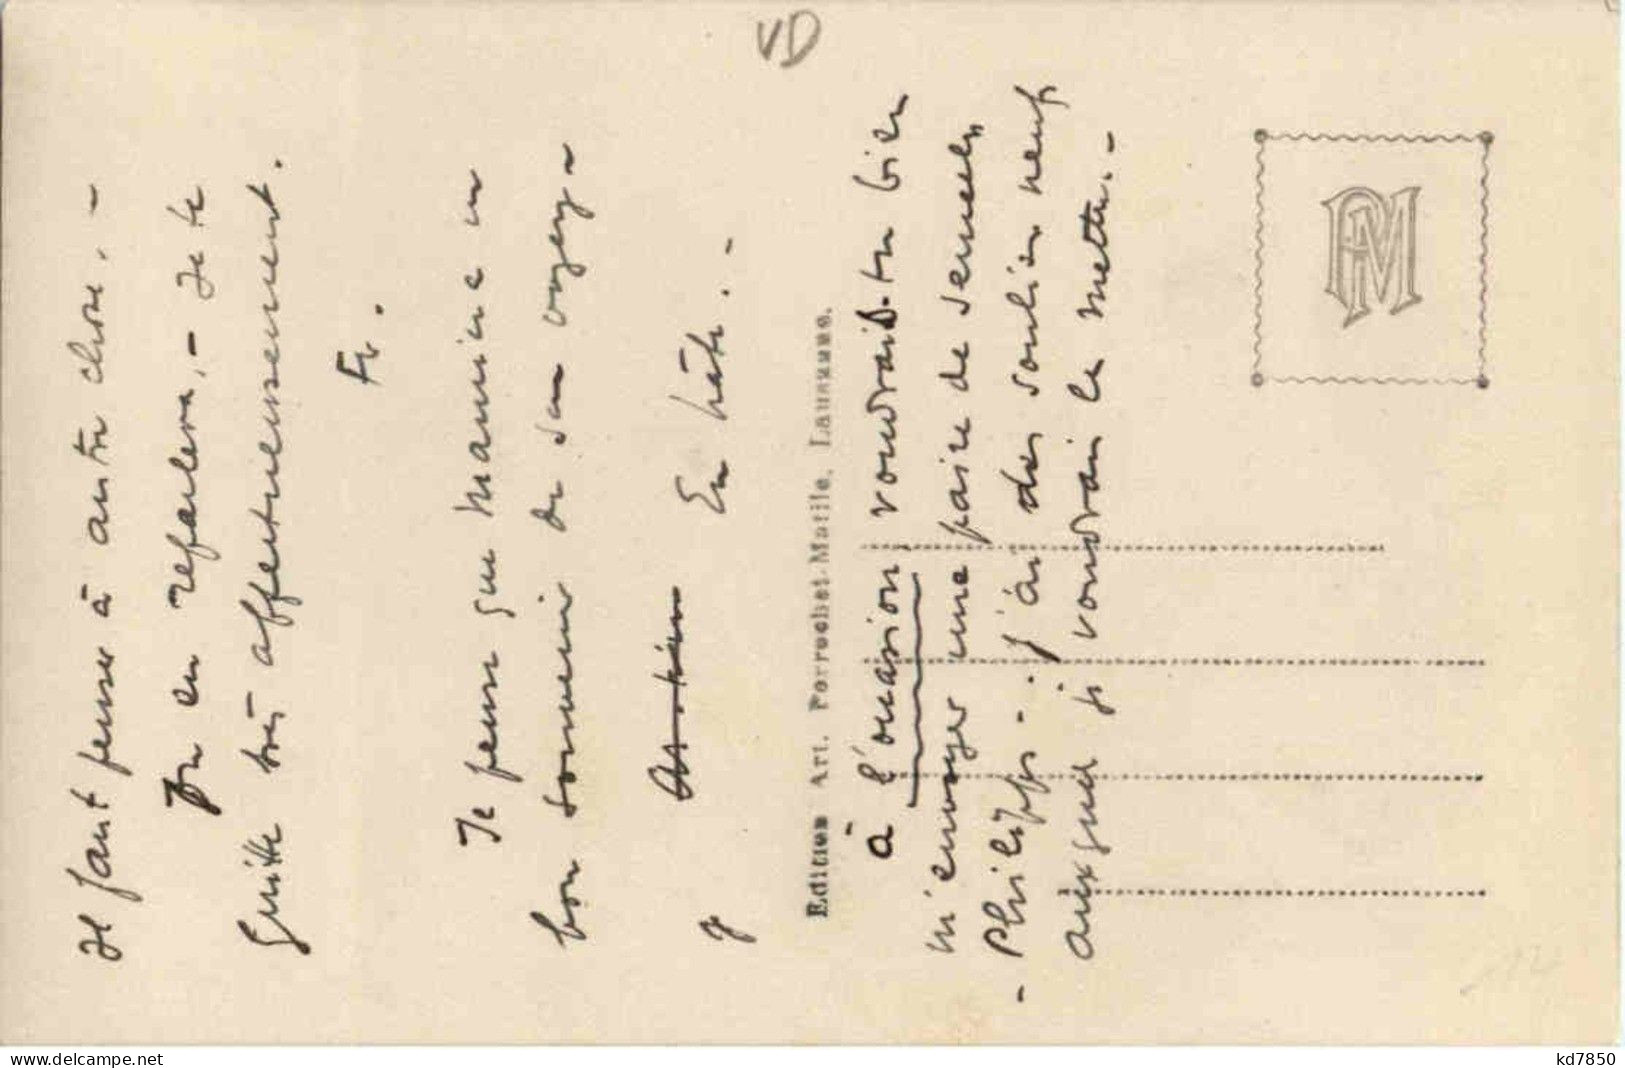 VD
Il faut penser à autre chose. –
On en reparlera. – Je te
quitte très affectueusement.
Fr.
Je pense que Mamina a un
bon souvenir de son voyage –
En hâte. –
Edition Art. Perrochet-Matile, Lausanne.
à l'occasion voudrais-tu bien
m'envoyer une paire de semelles
– Philipps –. J'ai des souliers neufs
auxquel je voudrai les mettre. –
PM
delcampe.net
kd7850